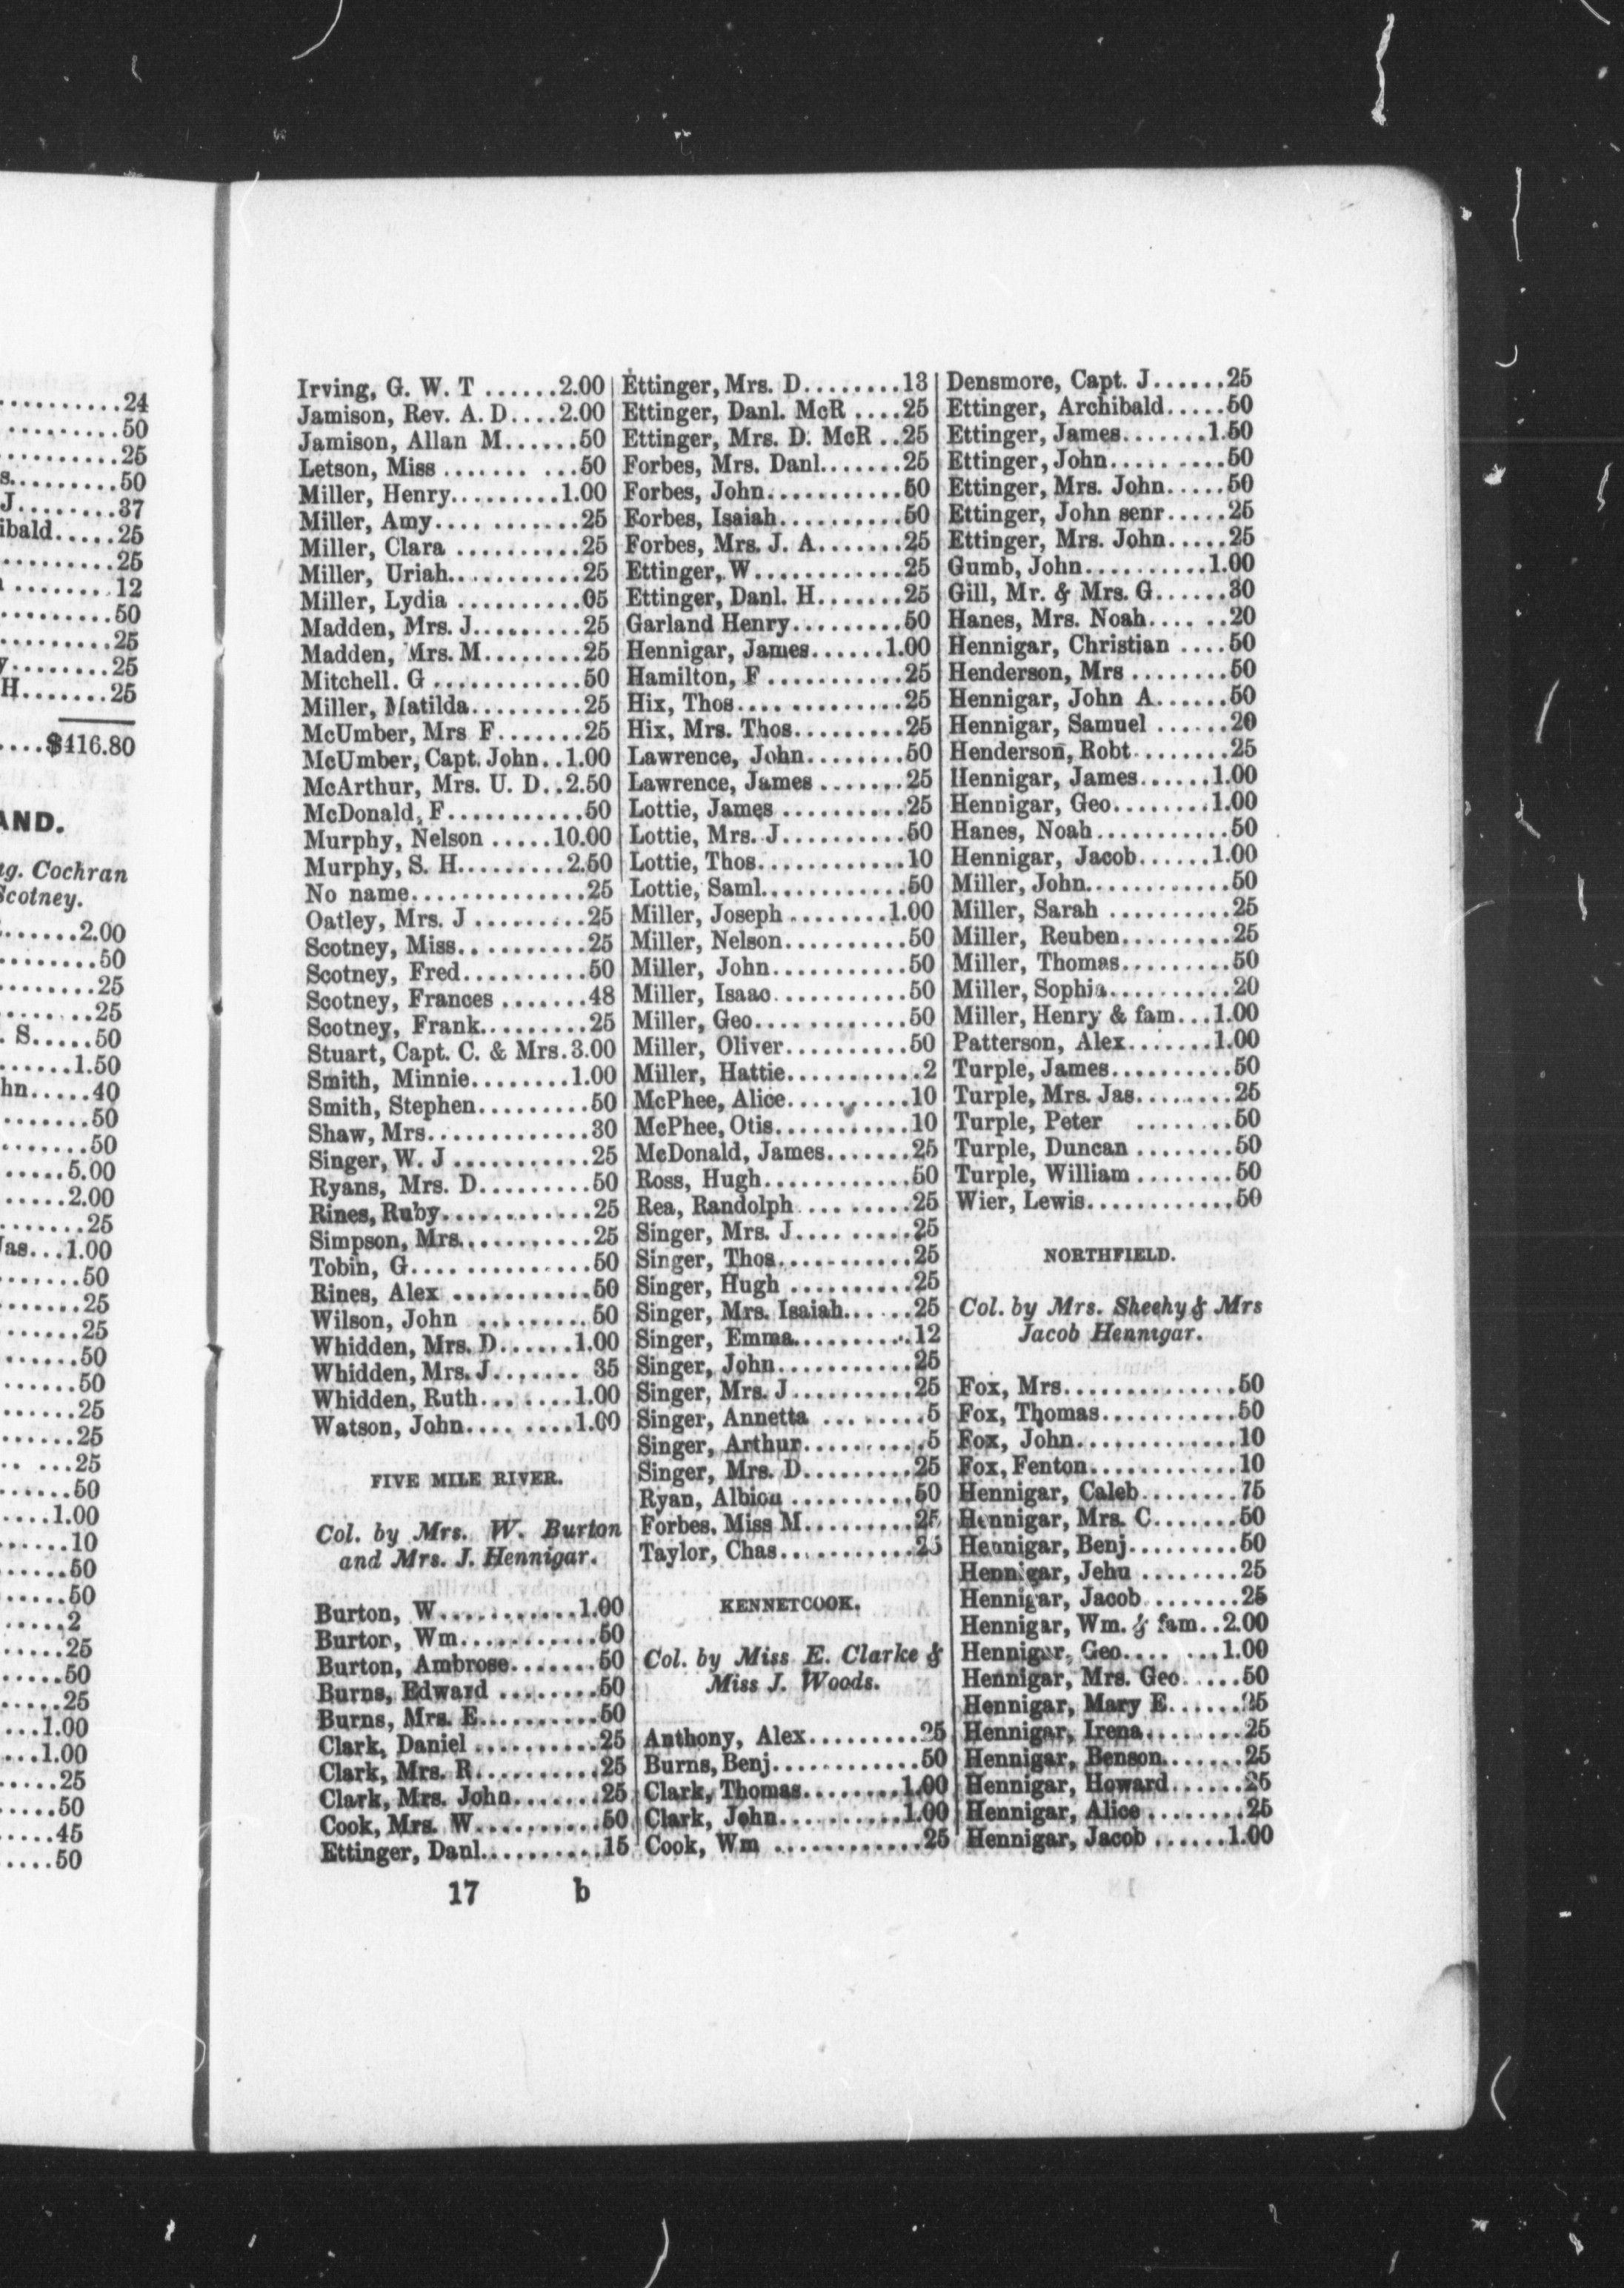 ..........24
.........50
..........25
s.........50
J........37
ibald.....25
..........25
........12
.........50
..........25
.........25
H.......25
....$416.80
AND.
Cochran
Scotney.
......2.00
........50
........25
.......25
. S.....50
......1.50
hn.....40
.......50
.......50
......5.00
......2.00
.......25
Jas...1.00
.......50
.......25
.......25
.......50
......50
......25
......25
.. ...25
......50
....1.00
......10
......50
.....50
.....2
.....25
.....50
.....25
...1.00
...1.00
.....25
.....50
.....45
.....50
Irving, G. W. T ......2.00
Jamison, Rev. A. D....2.00
Jamison, Allan M......50
Letson, Miss ....... ...50
Miller, Henry.........1.00
Miller, Amy.... ........25
Miller, Clara ..........25
Miller, Uriah...........25
Miller, Lydia ..........05
Madden, Mrs. J.........25
Madden, Mrs. M........25
Mitchell. G ............50
Miller, Matilda.........25
McUmber, Mrs F.......25
McUmber, Capt. John..1.00
McArthur, Mrs. U. D..2.50
McDonald, F...........50
Murphy, Nelson .....10.00
Murphy, S. H.........2.50
No name..............25
Oatley, Mrs. J .........25
Scotney, Miss...........25
Scotney, Fred..........50
Scotney, Frances .......48
Scotney, Frank.........25
Stuart, Capt. C. & Mrs.3.00
Smith, Minnie........1.00
Smith, Stephen.........50
Shaw, Mrs.............30
Singer, W. J ...........25
Ryans, Mrs. D.........50
Rines, Ruby............25
Simpson, Mrs...........25
Tobin, G...............50
Rines, Alex ...........50
Wilson, John .........50
Whidden, Mrs. D......1.00
Whidden, Mrs. J....... 35
Whidden, Ruth... ....1.00
Watson, John.... ....1.00
FIVE MILE RIVER.
Col. by Mrs. W. Burton
and Mrs. J. Hennigar.
Burton, W...........1.00
Burton, Wm...........50
Burton, Ambrose.......50
Burns, Edward ........50
Burns, Mrs. E..........50
Clark, Daniel ..........25
Clark, Mrs. R..........25
Clark, Mrs. John.......25
Cook, Mrs. W..........50
Ettinger, Danl..........15
Ettinger, Mrs. D........13
Ettinger, Danl. McR ....25
Ettinger, Mrs. D. McR ..25
Forbes, Mrs. Danl.......25
Forbes, John...........50
Forbes, Isaiah..........50
Forbes, Mrs. J. A.......25
Ettinger, W............25
Ettinger, Danl. H.......25
Garland Henry.........50
Hennigar, James......1.00
Hamilton, F ...........25
Hix, Thos.... ..........25
Hix, Mrs. Thos.........25
Lawrence, John........50
Lawrence, James .......25
Lottie, James ..........25
Lottie, Mrs. J..........50
Lottie, Thos............10
Lottie, Saml............50
Miller, Joseph ........1.00
Miller, Nelson..........50
Miller, John...........50
Miller, Isaac...........50
Miller, Geo............50
Miller, Oliver..........50
Miller, Hattie...........2
McPhee, Alice..........10
McPhee, Otis...........10
McDonald, James.......25
Ross, Hugh............50
Rea, Randolph .........25
Singer, Mrs. J.... .....25
Singer, Thos...........25
Singer, Hugh ..........25
Singer, Mrs. Isaiah......25
Singer, Emma..........12
Singer, John...........25
Singer, Mrs. J..........25
Singer, Annetta ........5
Singer, Arthur..........5
Singer, Mrs. D.........25
Ryan, Albion ..........50
Forbes. Miss M.........25
Taylor, Chas...........25
KENNETCOOK.
Col. by Miss E. Clarke &
Miss J. Woods.
Anthony, Alex.........25
Burns, Benj............50
Clark, Thomas........1.00
Clark, John..........1.00
Cook, Wm ............25
Densmore, Capt. J......25
Ettinger, Archibald.....50
Ettinger, James.......1.50
Ettinger, John..... ....50
Ettinger, Mrs. John.....50
Ettinger, John senr.....25
Ettinger, Mrs. John.....25
Gumb, John..........1.00
Gill, Mr. & Mrs. G......30
Hanes, Mrs. Noah.... ..20
Hennigar, Christian ....50
Henderson, Mrs ........50
Hennigar, John A......50
Hennigar, Samuel ......20
Henderson, Robt........25
Hennigar, James......1.00
Hennigar, Geo........1.00
Hanes, Noah...........50
Hennigar, Jacob......1.00
Miller, John............50
Miller, Sarah ..........25
Miller, Reuben.........25
Miller, Thomas.........50
Miller, Sophia..........20
Miller, Henry & fam...1.00
Patterson, Alex.......1.00
Turple, James..........50
Turple, Mrs. Jas........25
Turple, Peter ........50
Turple, Duncan ........50
Turple, William ........50
Wier, Lewis............50
NORTHFIELD.
Col. by Mrs. Sheehy & Mrs
Jacob Hennigar.
Fox, Mrs..............50
Fox, Thomas...........50
Fox, John.............10
Fox, Fenton............10
Hennigar, Caleb........75
Hennigar, Mrs. C.......50
Hennigar, Benj.........50
Hennigar, Jehu ........25
Hennigar, Jacob........25
Hennigar, Wm. & fam..2.00
Hennigar, Geo.... ...1.00
Hennigar, Mrs. Geo.....50
Hennigar, Mary E......25
Hennigar, Irena........25
Hennigar, Benson.......25
Hennigar, Howard......25
Hennigar, Alice ........25
Hennigar, Jacob ......1.00
17 b